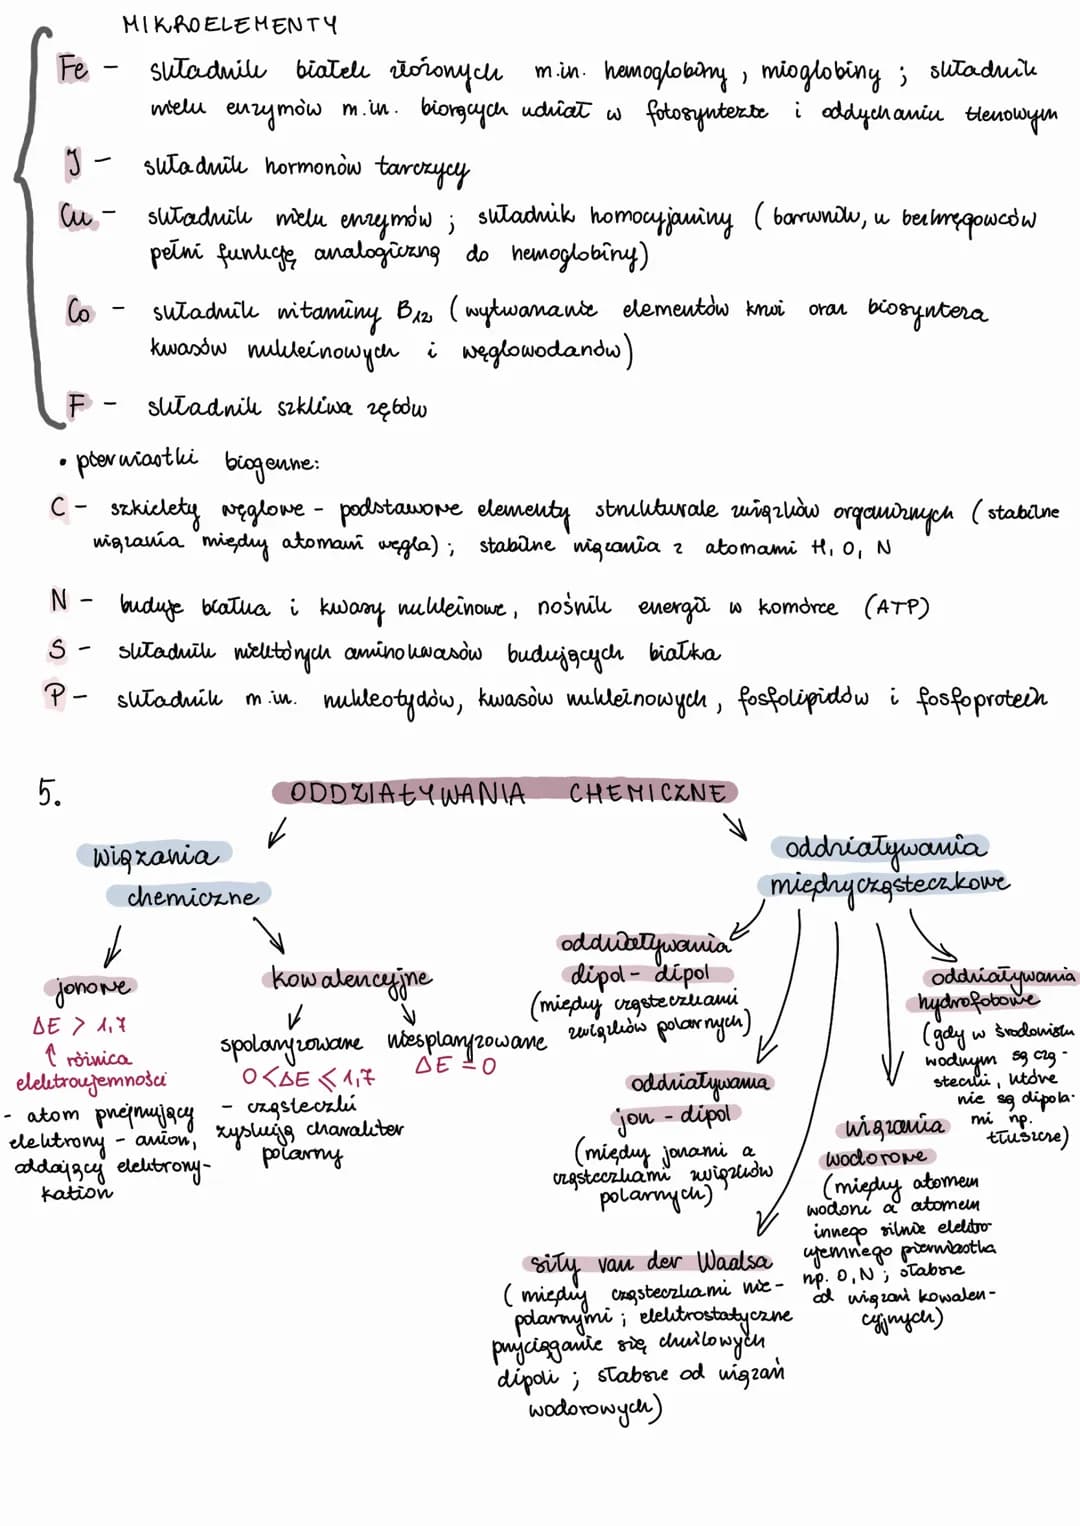 MIKROELEMENTY
Fe - składnik białek złożonych m.in. hemoglobiny, mioglobiny; składnik
wielu enzymów m.in. biorących udział w fotosyntezie i oddychaniu tlenowym
J - składnik hormonów tarczycy
Cu - składnik wielu enzymów; składnik homocyjaniny (barwnik, u bezkręgowców
pełni funkcję analogiczną do hemoglobiny)
Co - składnik witaminy B12 (wytwarzanie elementów krwi oraz biosynteza
kwasów nukleinowych i węglowodanów)
F - składnik szkliwa zębów
• pierwiastki biogenne:
C - szkielety węglowe - podstawowe elementy strukturale związków organicznych (stabilne
wiązania między atomami węgla); stabilne wiązania z atomami H, O, N
N - buduje białka i kwasy nukleinowe, nośnik energii w komórce (ATP)
S - składnik niektórych aminokwasów budujących białka
P - składnik m.in. nukleotydów, kwasów nukleinowych, fosfolipidów i fosfoprotein
5. ODDZIAŁYWANIA CHEMICZNE
wiązania
chemiczne
jonowe
ΔE > 1,7
↑ różnica
elektroujemności
- atom przejmujący
elektrony - anion,
oddający elektrony-
kation
kowalencyjne
spolaryzowane
0<ΔE ≤ 1,7
- cząsteczki
zyskują charakter
polarny
niesplaryzowane
ΔE = 0
oddziaływania
międzycząsteczkowe
oddziaływania
dipol - dipol
(między cząsteczkami
związków polarnych)
oddziaływania
jon - dipol
(między jonami a
cząsteczkami związków
polarnych)
siły van der Waalsa
(między cząsteczkami nie-
polarnymi; elektrostatyczne
przyciąganie się chwilowych
dipoli; słabsze od wiązań
wodorowych)
wiązania
wodorowe
(między atomem
wodoru a atomem
innego silnie elektro
ujemnego pierwiastka
np. O, N; słabsze
od wiązań kowalen-
cyjnych)
oddziaływania
hydrofobowe
(gdy w środowisku
wodnym są czą-
steczki, które
nie są dipola-
mi np.
tłuszcze)